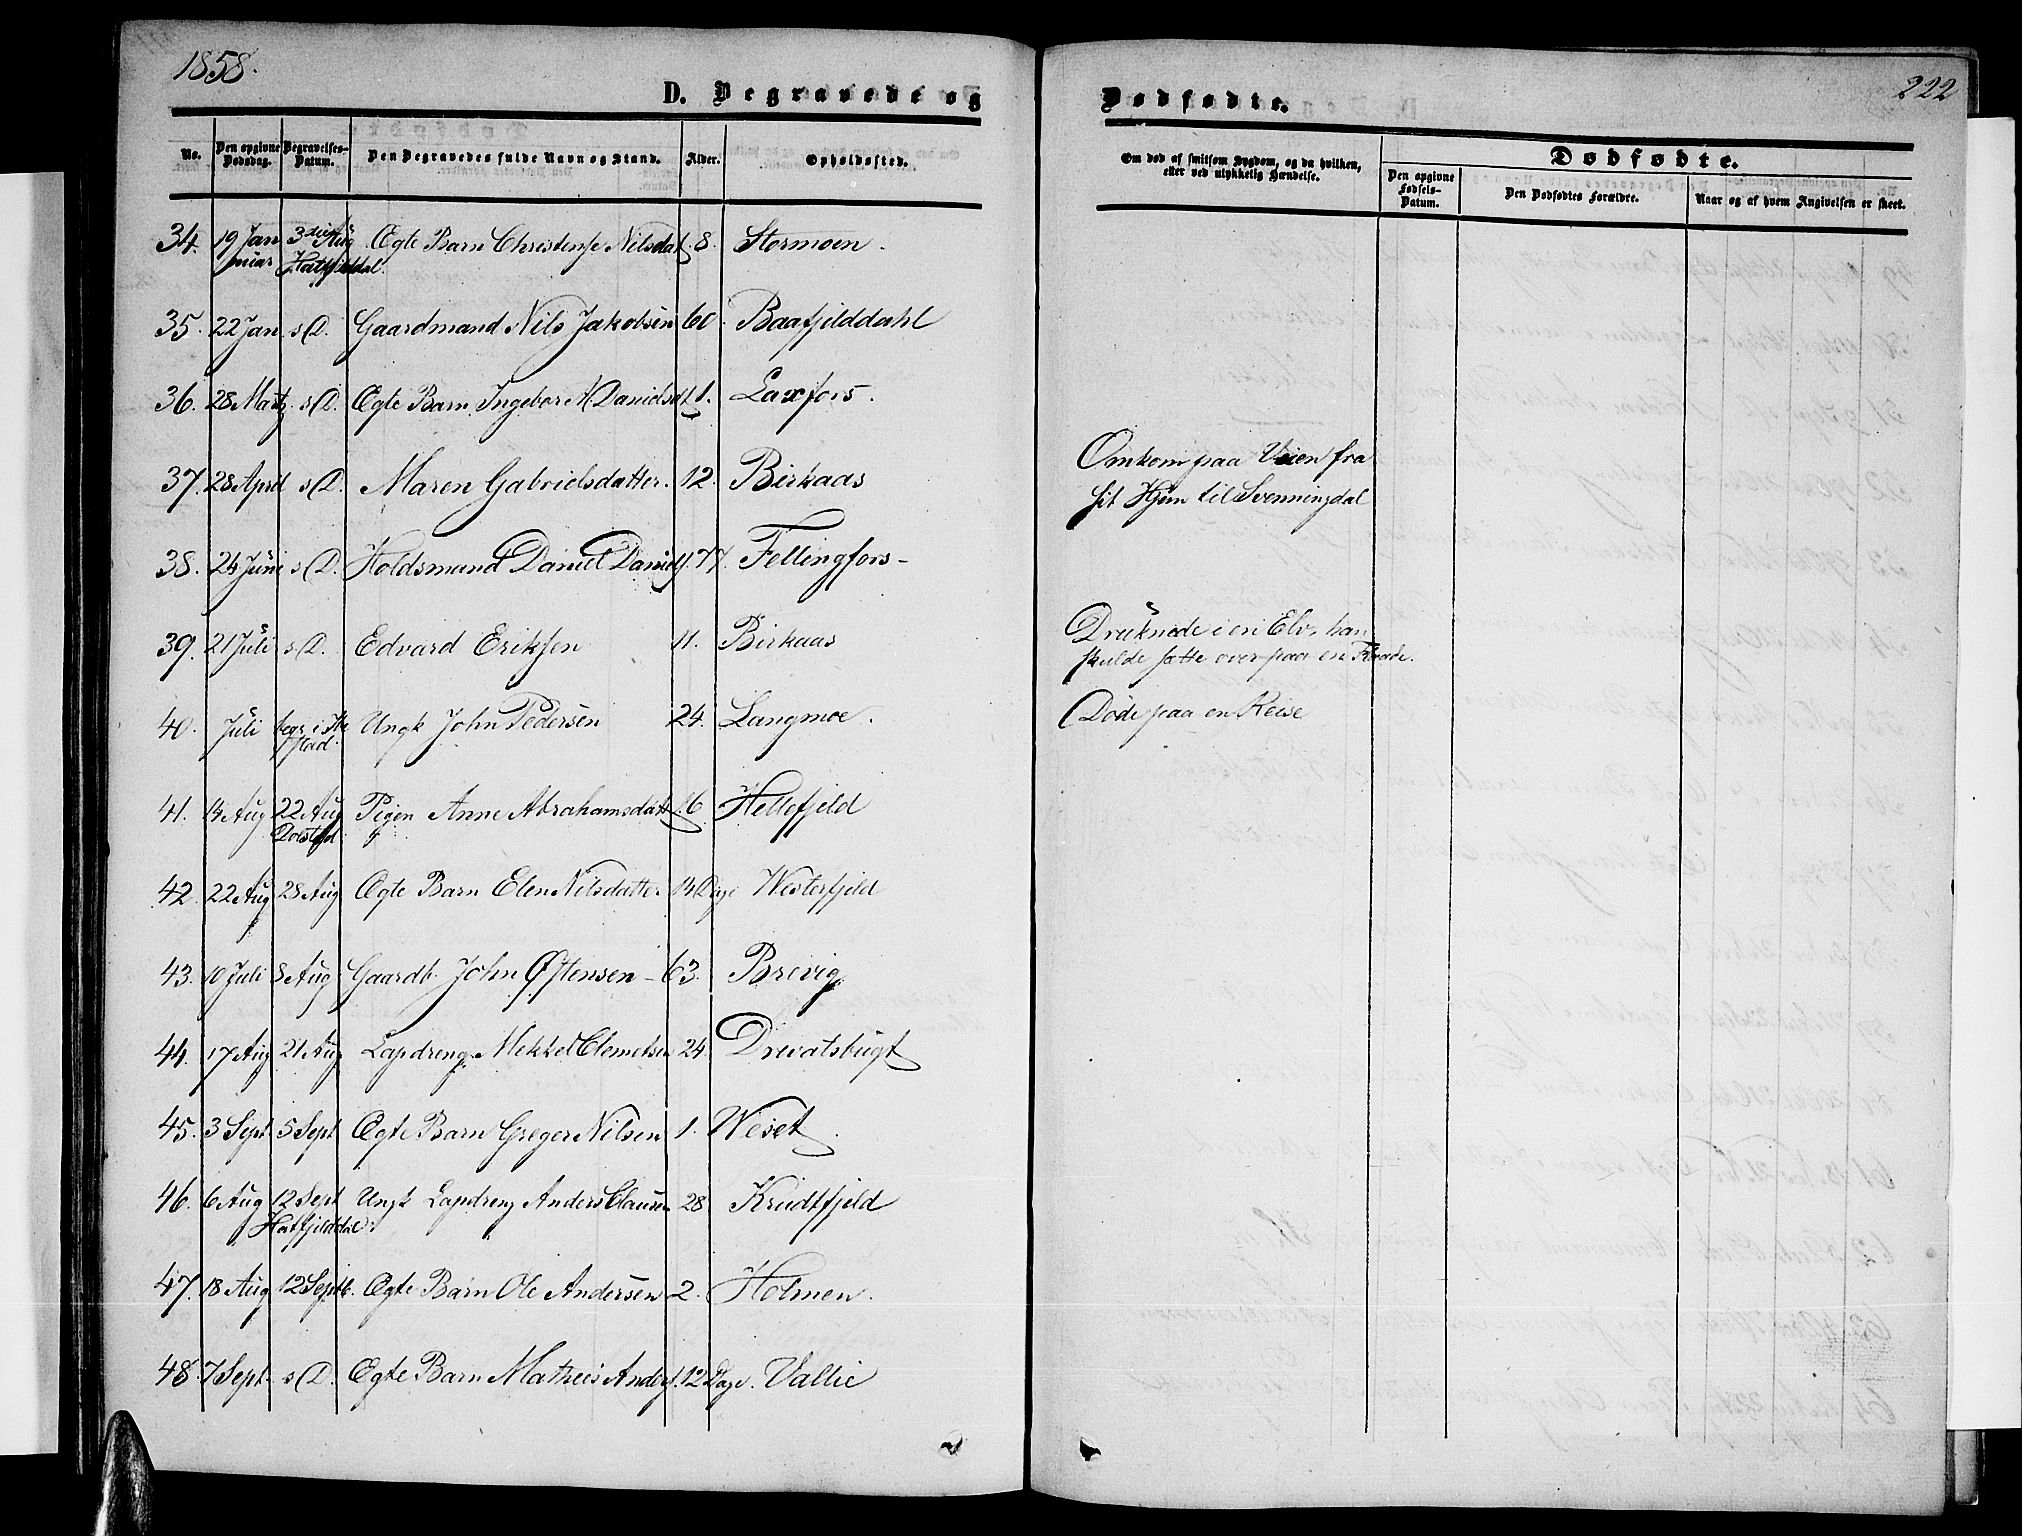 1858.
222
D. Begravede og
Dødfødte.
No. Den opgivne Dødsdag. Begravelses-Datum. Den Begravedes fulde Navn og Stand. Alder. Opholdssted.
Om død af smitsom Sygdom, og da hvilken, eller ved ulykkelig Hændelse.
Dødfødte.
Den opgivne Fødsels-Datum. Den Dødfødtes Forældre. Naar og af hvem Angivelsen er skeet.
34. 19 Januar 3die Aug Hatfjelddal. Ægte Barn Christense Nilsdat 8. Stormoen.
35. 22 Jan s D. Gaardmand Nils Jakobsen 60. Baafjelddahl
36. 28 Martz s D. Ægte Barn Ingebor A Danielsdt 1. Laxfors.
37. 28 April s D. Maren Gabrielsdatter. 12. Birkaas
Omkom paa Veien fra
sit Hjem til Svenningdal
38. 24 Juni s D. Holdsmand Daniel Daniels. 77. Fellingfors
39. 21 Juli s D. Edvard Eriksen 11. Birkaas
Druknede i en Elv, han
skulde sætte over paa en Flaade.
40. Juli begr. i Ha Ungk John Pedersen 24. Langmoe.
Døde paa en Reise
41. 14 Aug 22 Aug Dolstad Pigen Anne Abrahamsdatt 16 Hellefjeld
42. 22 Aug 28 Aug Ægte Barn Elen Nilsdatter 14 Dage Westerfjeld
43. 10 Juli 8 Aug Gaardb. John Østensen 63. Brevig
44. 17 Aug 21 Aug Lapdreng Mekkel Clemetsen 24. Drevatsbugt
45. 3 Sept 5 Sept Ægte Barn Greger Nilsen 1. Weset
46. 6 Aug 12 Sept Hatfjelddal. Ungk Lapdreng Anders Clausen 28 Krudtfjeld
47. 18 Aug 12 Septb. Ægte Barn Ole Andersen 2. Holmen.
48. 7 Sept. s D. Ægte Barn Matheis Anders. 12 Dage. Vallie